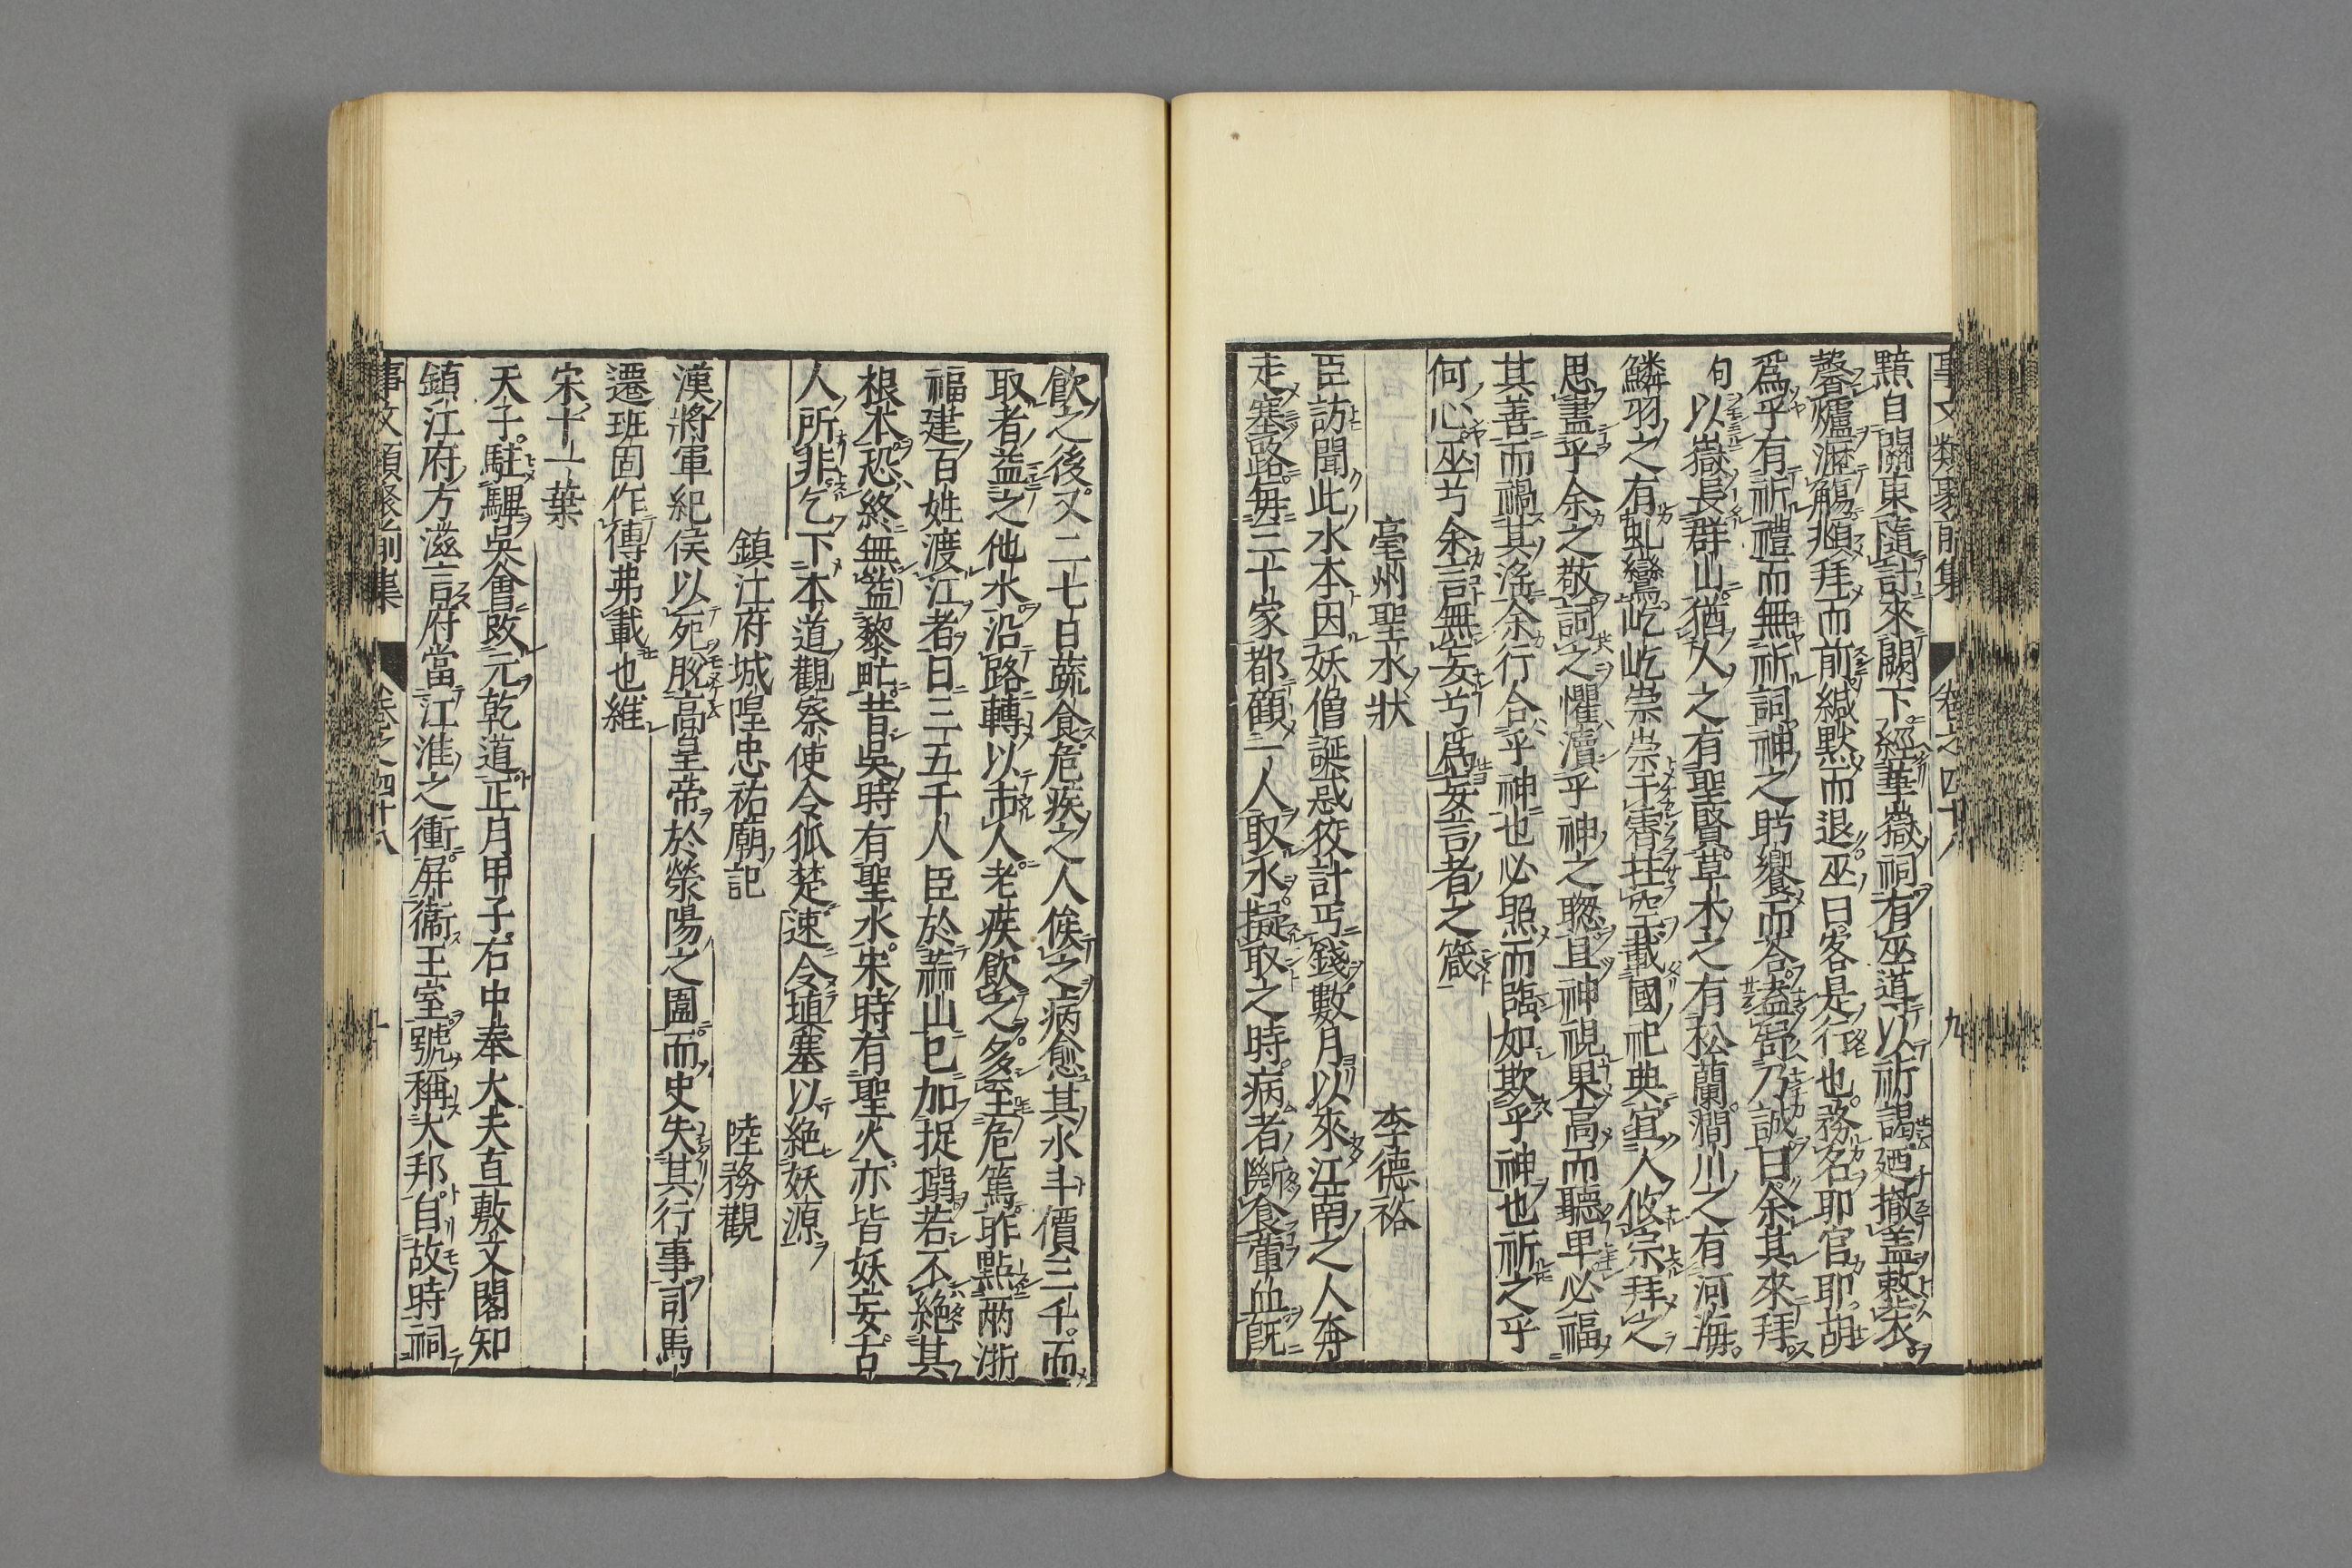 事文類聚前集 卷之四十八 九
黥自關東隨計來闕下經華嶽祠有巫導以祈謁廼撤盖敕裝
馨爐灑觴頫拜而前緘默而退巫曰客是行也務名耶官耶胡
爲乎有祈禮而無祈詞神之肹饗而荅盍謌乃誠曰余其來拜
句以嶽長群山猶人之有聖賢草木之有松蘭澗川之有河海
鱗羽之有虬鸞屹屹崇崇千霄拄空載國祀典宜人攸宗拜之
思盡乎余之敬詞之懼瀆乎神之聦且神視果高而聽卑必福
其善而禍其滛余行合乎神也必照而臨如欺乎神也祈之乎
何心巫兮余言無妄兮爲妄言者之箴
亳州聖水狀 李德裕
臣訪聞此水本因妖僧誕惑狡計丐錢數月以來江南之人奔
走塞路每三十家都顧一人取水擬取之時病者斷食葷血旣
飮之後又二七日蔬食危疾之人俟之病愈其水斗價三千而
取者益之他水沿路轉以市人老疾飮之多至危篤昨點兩浙
福建百姓渡江者日三五千人臣於蒜山已加捉搦若不絶其
根本恐終無益黎甿昔吳時有聖水宋時有聖火亦皆妖妄古
人所非乞下本道觀察使令狐楚速令塡塞以絶妖源
鎮江府城隍忠祐廟記 陸務觀
漢將軍紀侯以死脫高皇帝於滎陽之圍而史失其行事司馬
遷班固作傳弗載也維
宋十一葉
天子駐驆吳會改元乾道正月甲子右中奉大夫直敷文閣知
鎮江府方滋言府當江淮之衝屏衞王室號稱大邦自故時祠
事文類聚前集 卷之四十八 十